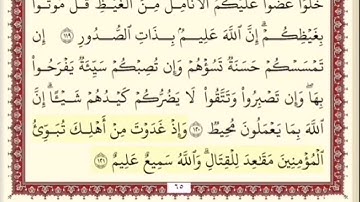 خَلَوْا۟ عَضُّوا۟ عَلَيْكُمُ ٱلْأَنَامِلَ مِنَ ٱلْغَيْظِ قُلْ مُوتُوا۟
بِغَيْظِكُمْ إِنَّ ٱللَّهَ عَلِيمٌۢ بِذَاتِ ٱلصُّدُورِ ١١٩ إِن
تَمْسَسْكُمْ حَسَنَةٌ تَسُؤْهُمْ وَإِن تُصِبْكُمْ سَيِّئَةٌ يَفْرَحُوا۟
بِهَا وَإِن تَصْبِرُوا۟ وَتَتَّقُوا۟ لَا يَضُرُّكُمْ كَيْدُهُمْ شَيْـًٔا إِنَّ
ٱللَّهَ بِمَا يَعْمَلُونَ مُحِيطٌ ١٢٠ وَإِذْ غَدَوْتَ مِنْ أَهْلِكَ تُبَوِّئُ
ٱلْمُؤْمِنِينَ مَقَـٰعِدَ لِلْقِتَالِ وَٱللَّهُ سَمِيعٌ عَلِيمٌ ١٢١
٦٥